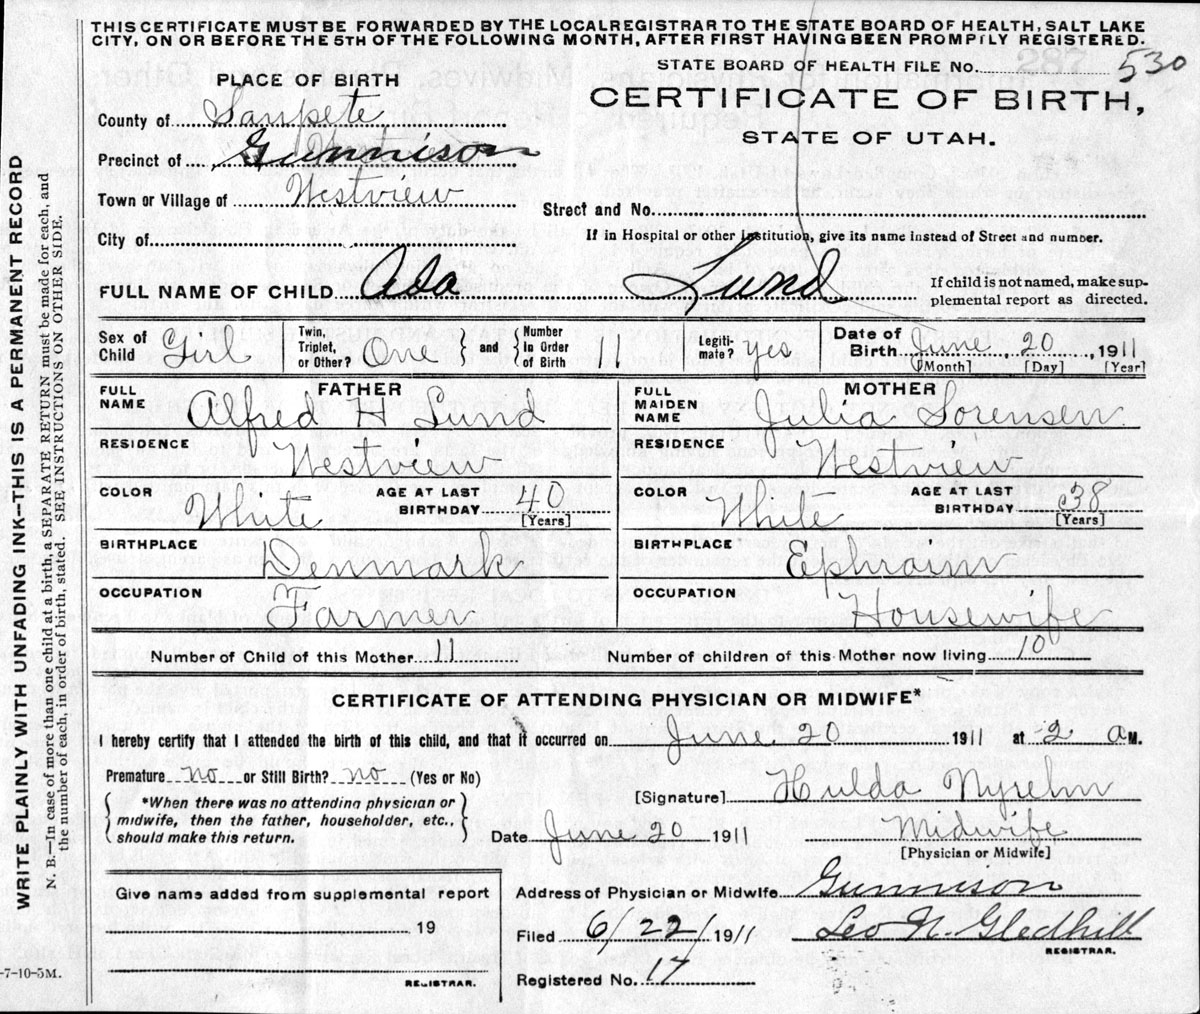 THIS CERTIFICATE MUST BE FORWARDED BY THE LOCAL REGISTRAR TO THE STATE BOARD OF HEALTH, SALT LAKE
CITY, ON OR BEFORE THE 5TH OF THE FOLLOWING MONTH, AFTER FIRST HAVING BEEN PROMPTLY REGISTERED.
STATE BOARD OF HEALTH FILE NO. 530
CERTIFICATE OF BIRTH,
STATE OF UTAH.
PLACE OF BIRTH
County of Sanpete
Precinct of Gunnison
Town or Village of Westview
Street and No.
City of
If in Hospital or other Institution, give its name instead of Street and number.
FULL NAME OF CHILD Ada Lund
If child is not named, make supplemental report as directed.
Sex of Child Girl
Twin, Triplet, or Other? One and Number In Order of Birth 1
Legitimate? yes
Date of Birth June 20, 1911
[Month] [Day] [Year]
FATHER
FULL NAME Alfred H Lund
RESIDENCE Westview
COLOR White AGE AT LAST BIRTHDAY 40 [Years]
BIRTHPLACE Denmark
OCCUPATION Farmer
MOTHER
FULL MAIDEN NAME Julia Sorensen
RESIDENCE Westview
COLOR White AGE AT LAST BIRTHDAY 38 [Years]
BIRTHPLACE Ephraim
OCCUPATION Housewife
Number of Child of this Mother 11 Number of children of this Mother now living 10
CERTIFICATE OF ATTENDING PHYSICIAN OR MIDWIFE*
I hereby certify that I attended the birth of this child, and that it occurred on June 20 1911 at 2 a M.
Premature no or Still Birth? no (Yes or No)
*When there was no attending physician or
midwife, then the father, householder, etc.,
should make this return.
[Signature] Hulda
Date June 20 1911 Midwife
[Physician or Midwife]
Give name added from supplemental report
19
REGISTRAR.
Address of Physician or Midwife Gunnison
Filed 6/22/1911 Leo N. Gledhill
REGISTRAR.
Registered No. 17
-7-10-5M.
WRITE PLAINLY WITH UNFADING INK—THIS IS A PERMANENT RECORD
N. B.—In case of more than one child at a birth, a SEPARATE RETURN must be made for each, and
the number of each, in order of birth, stated. SEE INSTRUCTIONS ON OTHER SIDE.